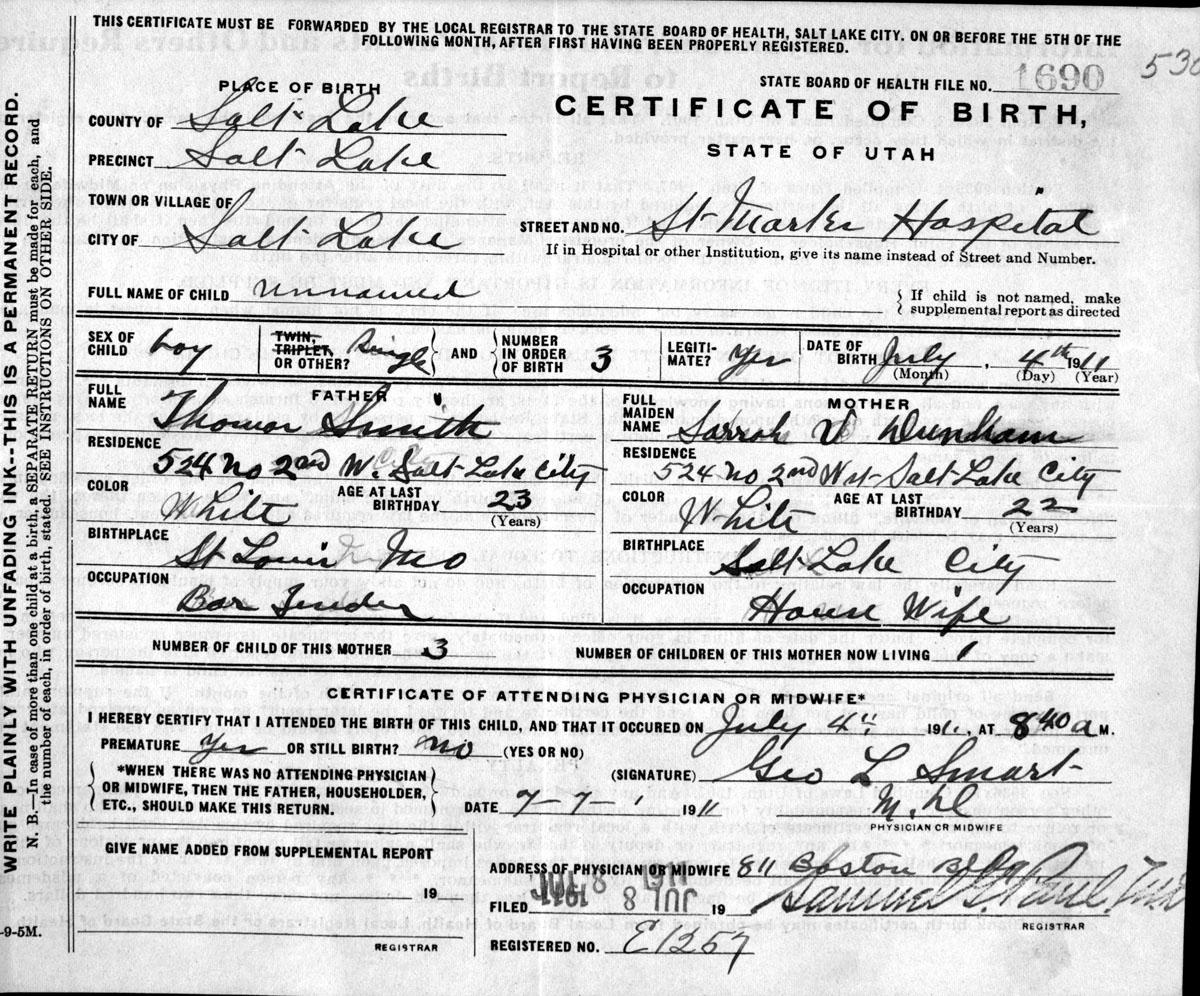 THIS CERTIFICATE MUST BE FORWARDED BY THE LOCAL REGISTRAR TO THE STATE BOARD OF HEALTH, SALT LAKE CITY, ON OR BEFORE THE 5TH OF THE
FOLLOWING MONTH, AFTER FIRST HAVING BEEN PROPERLY REGISTERED.
STATE BOARD OF HEALTH FILE NO. 1690
PLACE OF BIRTH
CERTIFICATE OF BIRTH,
STATE OF UTAH
COUNTY OF Salt Lake
PRECINCT Salt Lake
TOWN OR VILLAGE OF
CITY OF Salt Lake
STREET AND NO. St Marks Hospital
If in Hospital or other Institution, give its name instead of Street and Number.
FULL NAME OF CHILD unnamed
If child is not named, make
supplemental report as directed
SEX OF CHILD boy
TWIN, TRIPLET, OR OTHER? Single
AND NUMBER IN ORDER OF BIRTH 3
LEGITI-MATE? Yes
DATE OF BIRTH July 4th 1911
(Month) (Day) (Year)
FATHER
FULL NAME Thomas Smith
RESIDENCE
524 no 2nd W. Salt Lake City
COLOR White
AGE AT LAST BIRTHDAY 23
(Years)
BIRTHPLACE
St Louis Mo
OCCUPATION
Bar Tender
MOTHER
FULL MAIDEN NAME Sarrah V Dunham
RESIDENCE
524 no 2nd Wst Salt Lake City
COLOR White
AGE AT LAST BIRTHDAY 22
(Years)
BIRTHPLACE
Salt Lake City
OCCUPATION
House Wife
NUMBER OF CHILD OF THIS MOTHER 3
NUMBER OF CHILDREN OF THIS MOTHER NOW LIVING 1
CERTIFICATE OF ATTENDING PHYSICIAN OR MIDWIFE*
I HEREBY CERTIFY THAT I ATTENDED THE BIRTH OF THIS CHILD, AND THAT IT OCCURED ON July 4" 1911, AT 840 a M.
PREMATURE Yes OR STILL BIRTH? no (YES OR NO)
*WHEN THERE WAS NO ATTENDING PHYSICIAN
OR MIDWIFE, THEN THE FATHER, HOUSEHOLDER,
ETC., SHOULD MAKE THIS RETURN.
(SIGNATURE) Geo L Smart
M.D.
PHYSICIAN OR MIDWIFE
DATE 7-7-, 1911
GIVE NAME ADDED FROM SUPPLEMENTAL REPORT
19
REGISTRAR
ADDRESS OF PHYSICIAN OR MIDWIFE 811 Boston Bldg
FILED JUL 8 1911 19
Samuel G Paul, M.D.
REGISTRAR
REGISTERED NO. E1267
WRITE PLAINLY WITH UNFADING INK--THIS IS A PERMANENT RECORD.
N. B.—In case of more than one child at a birth, a SEPARATE RETURN must be made for each, and
the number of each, in order of birth, stated. SEE INSTRUCTIONS ON OTHER SIDE.
-9-5M.